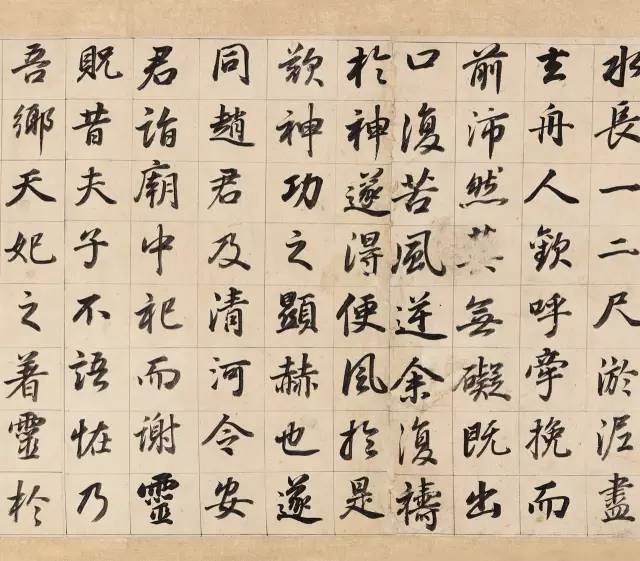 水長一二尺淤泥盡
去舟人歡呼牽挽而
前沛然其無礙既出
口復苦風逆余復禱
於神遂得便風於是
歎神功之顯赫也遂
同趙君及清河令安
君詣廟中祀而謝靈
貺昔夫子不語恠乃
吾鄉天妃之著靈於